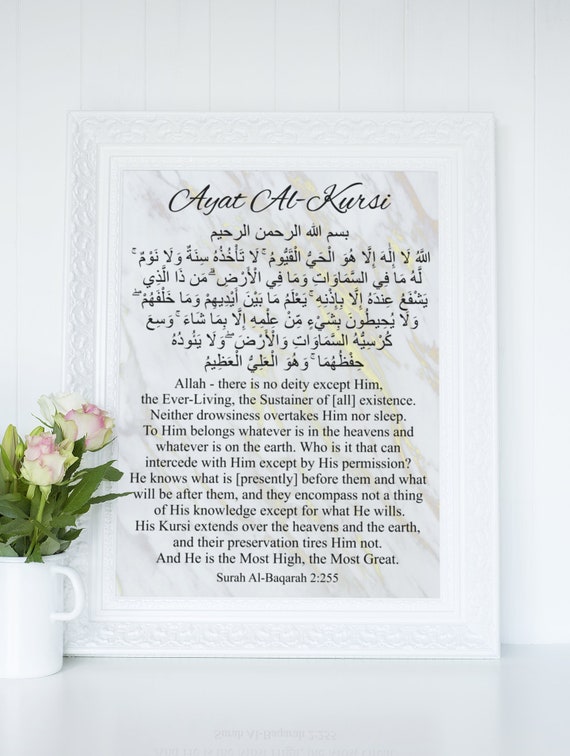 Ayat Al-Kursi
بسم الله الرحمن الرحيم
اللَّهُ لَا إِلَٰهَ إِلَّا هُوَ الْحَيُّ الْقَيُّومُ ۚ لَا تَأْخُذُهُ سِنَةٌ وَلَا نَوْمٌ ۚ
لَّهُ مَا فِي السَّمَاوَاتِ وَمَا فِي الْأَرْضِ ۗ مَن ذَا الَّذِي
يَشْفَعُ عِندَهُ إِلَّا بِإِذْنِهِ ۚ يَعْلَمُ مَا بَيْنَ أَيْدِيهِمْ وَمَا خَلْفَهُمْ ۖ
وَلَا يُحِيطُونَ بِشَيْءٍ مِّنْ عِلْمِهِ إِلَّا بِمَا شَاءَ ۚ وَسِعَ
كُرْسِيُّهُ السَّمَاوَاتِ وَالْأَرْضَ ۖ وَلَا يَئُودُهُ
حِفْظُهُمَا ۚ وَهُوَ الْعَلِيُّ الْعَظِيمُ
Allah - there is no deity except Him,
the Ever-Living, the Sustainer of [all] existence.
Neither drowsiness overtakes Him nor sleep.
To Him belongs whatever is in the heavens and
whatever is on the earth. Who is it that can
intercede with Him except by His permission?
He knows what is [presently] before them and what
will be after them, and they encompass not a thing
of His knowledge except for what He wills.
His Kursi extends over the heavens and the earth,
and their preservation tires Him not.
And He is the Most High, the Most Great.
Surah Al-Baqarah 2:255